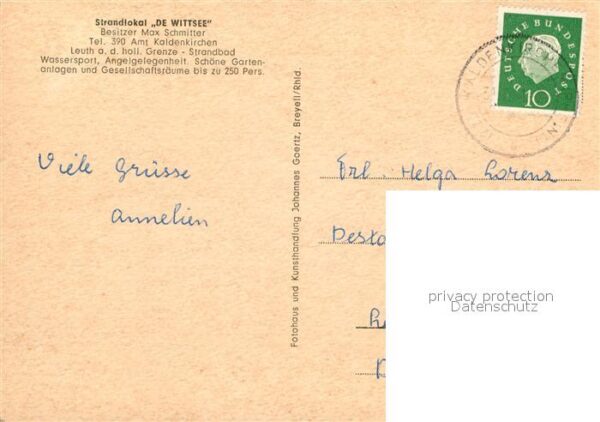 Strandlokal „DE WITTSEE"
Besitzer Max Schmitter
Tel. 390 Amt Kaldenkirchen
Leuth a. d. holl. Grenze - Strandbad
Wassersport, Angelgelegenheit. Schöne Garten-
anlagen und Gesellschaftsräume bis zu 250 Pers.
DEUTSCHE BUNDESPOST
10
Viele Grüsse
Annelien
Fotohaus und Kunsthandlung Johannes Goertz, Breyell/Rhld.
Frl. Helga Lorenz
privacy protection
Datenschutz